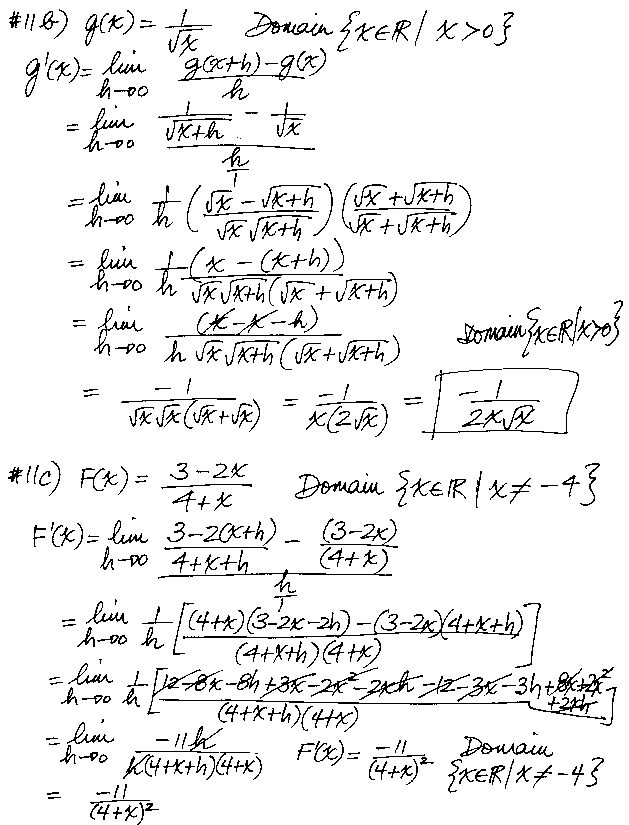 #11b) g(x) = 1/√x Domain {x∈R | x>0}
g'(x) = lim h→0 (g(x+h)-g(x))/h
= lim h→0 (1/√(x+h) - 1/√x)/(h/1)
= lim h→0 1/h ((√x - √(x+h))/(√x √(x+h))) ((√x + √(x+h))/(√x + √(x+h)))
= lim h→0 1/h (x - (x+h))/(√x √(x+h) (√x + √(x+h)))
= lim h→0 (x - x - h)/(h √x √(x+h) (√x + √(x+h))) Domain {x∈R | x>0}
= -1/(√x √x (√x + √x)) = -1/(x(2√x)) = -1/(2x√x)
#11c) F(x) = (3-2x)/(4+x) Domain {x∈R | x ≠ -4}
F'(x) = lim h→0 ((3-2(x+h))/(4+x+h) - (3-2x)/(4+x))/(h/1)
= lim h→0 1/h [((4+x)(3-2x-2h) - (3-2x)(4+x+h))/((4+x+h)(4+x))]
= lim h→0 1/h [(12-8x-8h+3x-2x²-2xh-12-3x-3h+8x+2x²+2xh)/((4+x+h)(4+x))]
= lim h→0 -11h/(h(4+x+h)(4+x)) F'(x) = -11/(4+x)² Domain {x∈R | x ≠ -4}
= -11/(4+x)²